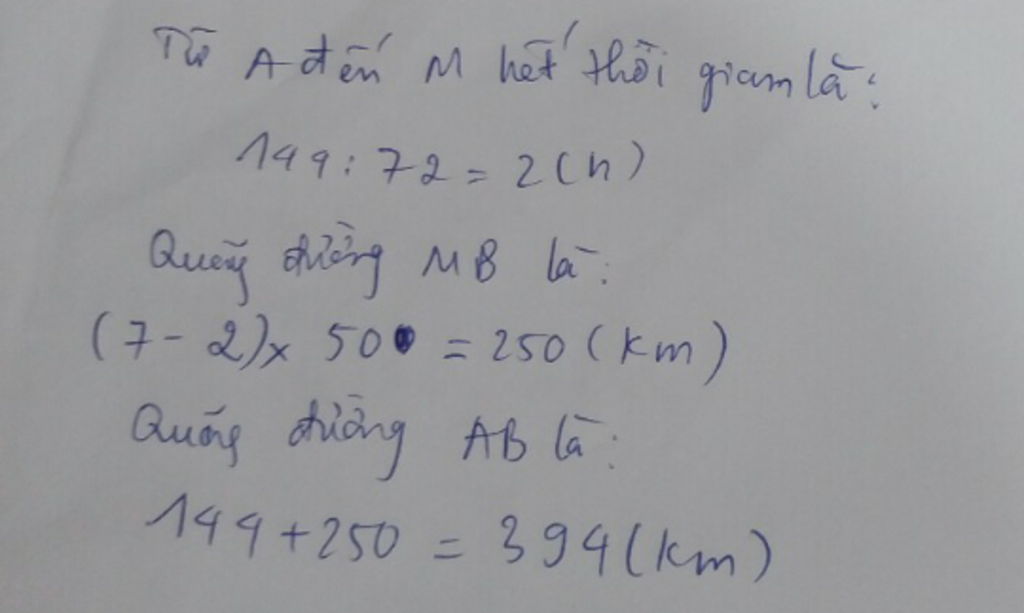 Từ A đến M hết thời gian là:
144 : 72 = 2 (h)
Quãng đường MB là:
(7 - 2) x 50 = 250 (km)
Quãng đường AB là:
144 + 250 = 394 (km)